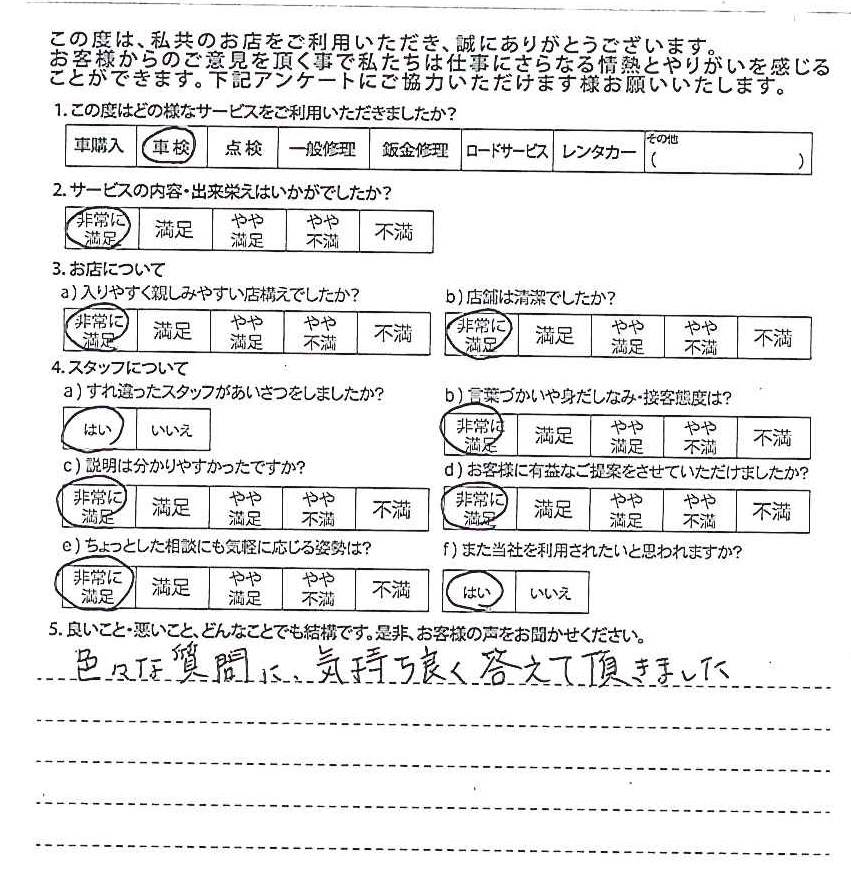 この度は、私共のお店をご利用いただき、誠にありがとうございます。
お客様からのご意見を頂く事で私たちは仕事にさらなる情熱とやりがいを感じる
ことができます。下記アンケートにご協力いただけます様お願いいたします。
1.この度はどの様なサービスをご利用いただきましたか?
車購入 車検 点検 一般修理 鈑金修理 ロードサービス レンタカー その他( )
2.サービスの内容・出来栄えはいかがでしたか?
非常に満足 満足 やや満足 やや不満 不満
3.お店について
a)入りやすく親しみやすい店構えでしたか?
非常に満足 満足 やや満足 やや不満 不満
b)店舗は清潔でしたか?
非常に満足 満足 やや満足 やや不満 不満
4.スタッフについて
a)すれ違ったスタッフがあいさつをしましたか?
はい いいえ
b)言葉づかいや身だしなみ・接客態度は?
非常に満足 満足 やや満足 やや不満 不満
c)説明は分かりやすかったですか?
非常に満足 満足 やや満足 やや不満 不満
d)お客様に有益なご提案をさせていただけましたか?
非常に満足 満足 やや満足 やや不満 不満
e)ちょっとした相談にも気軽に応じる姿勢は?
非常に満足 満足 やや満足 やや不満 不満
f)また当社を利用されたいと思われますか?
はい いいえ
5.良いこと・悪いこと、どんなことでも結構です。是非、お客様の声をお聞かせください。
色々な質問に、気持ち良く答えて頂きました